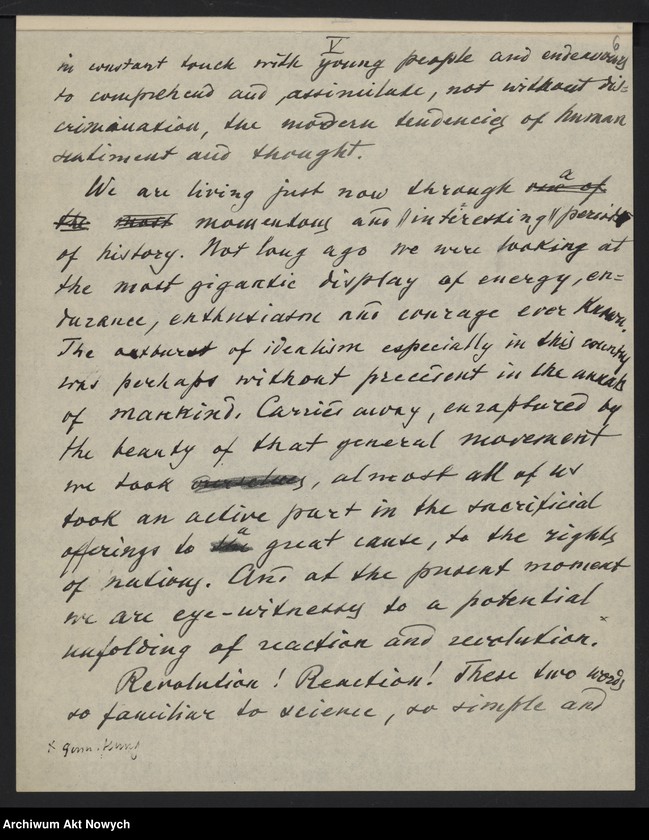 V
6
in constant touch with young people and endeavours
to comprehend and assimilate, not without dis=
crimination, the modern tendencies of human
sentiment and thought.
We are living just now through one of a
the most momentous and interesting period
of history. Not long ago we were looking at
the most gigantic display of energy, en=
durance, enthusiasm and courage ever known.
The outburst of idealism especially in this country
was perhaps without precedent in the annals
of mankind. Carried away, enraptured by
the beauty of that general movement
we took ourselves, almost all of us
took an active part in the sacrificial
offerings to the a great cause, to the rights
of nations. And at the present moment
we are eye-witnesses to a potential
unfolding of reaction and revolution. x
Revolution! Reaction! These two words
so familiar to science, so simple and
x
Archiwum Akt Nowych